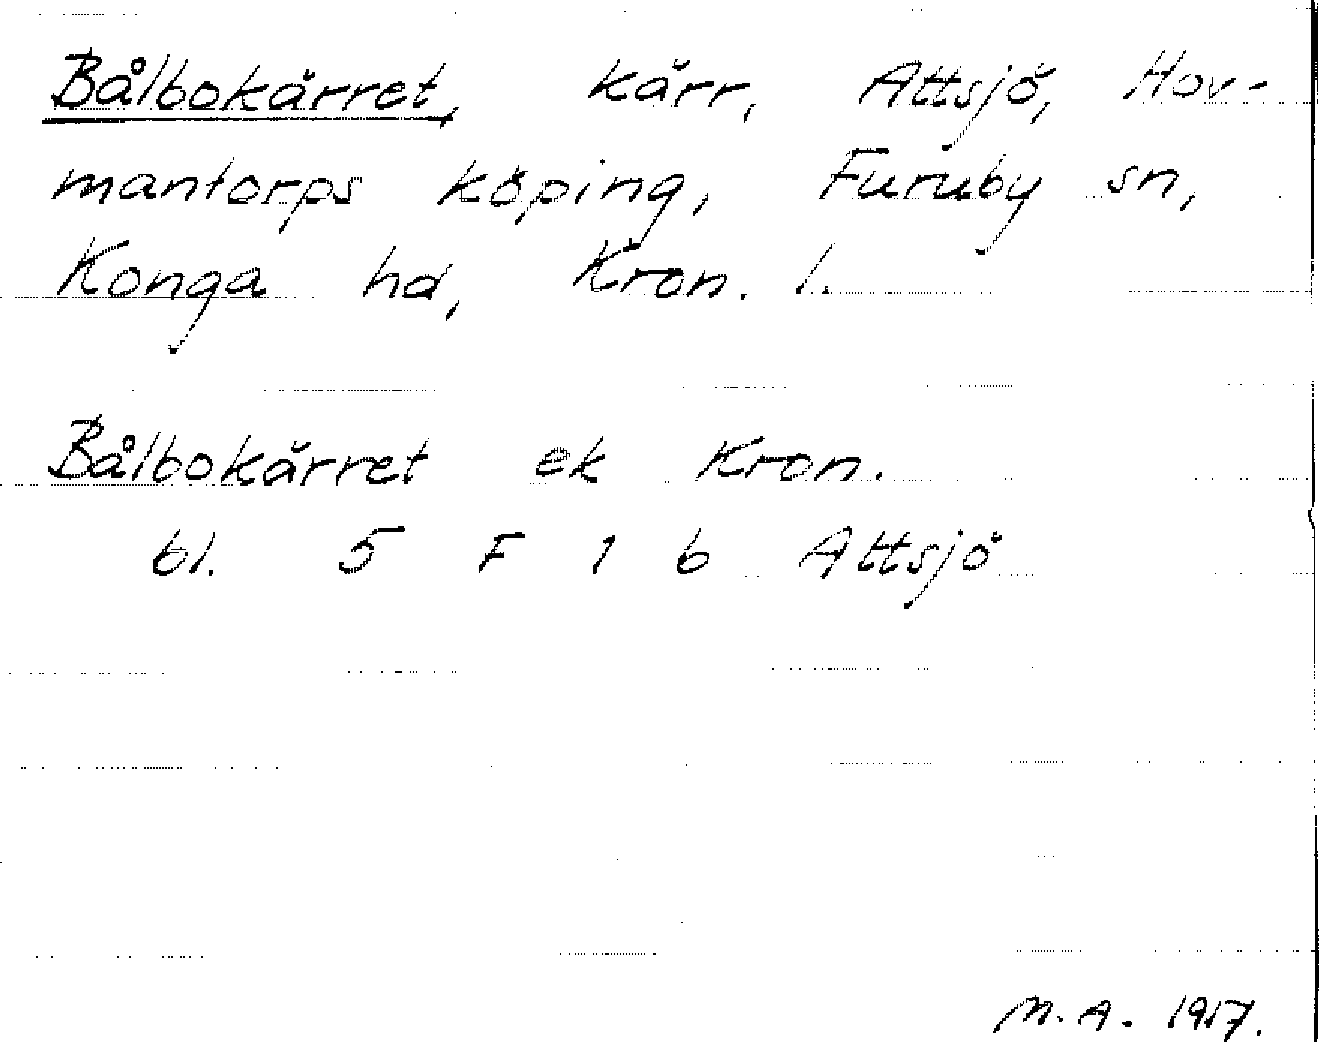 Bålbokärret, kärr, Attsjö, Hov-
mantorps köping, Furuby sn,
Konga hd, Kron. l.
Bålbokärret ek Kron.
bl. 5 F 1 b Attsjö
M. A. 1957.